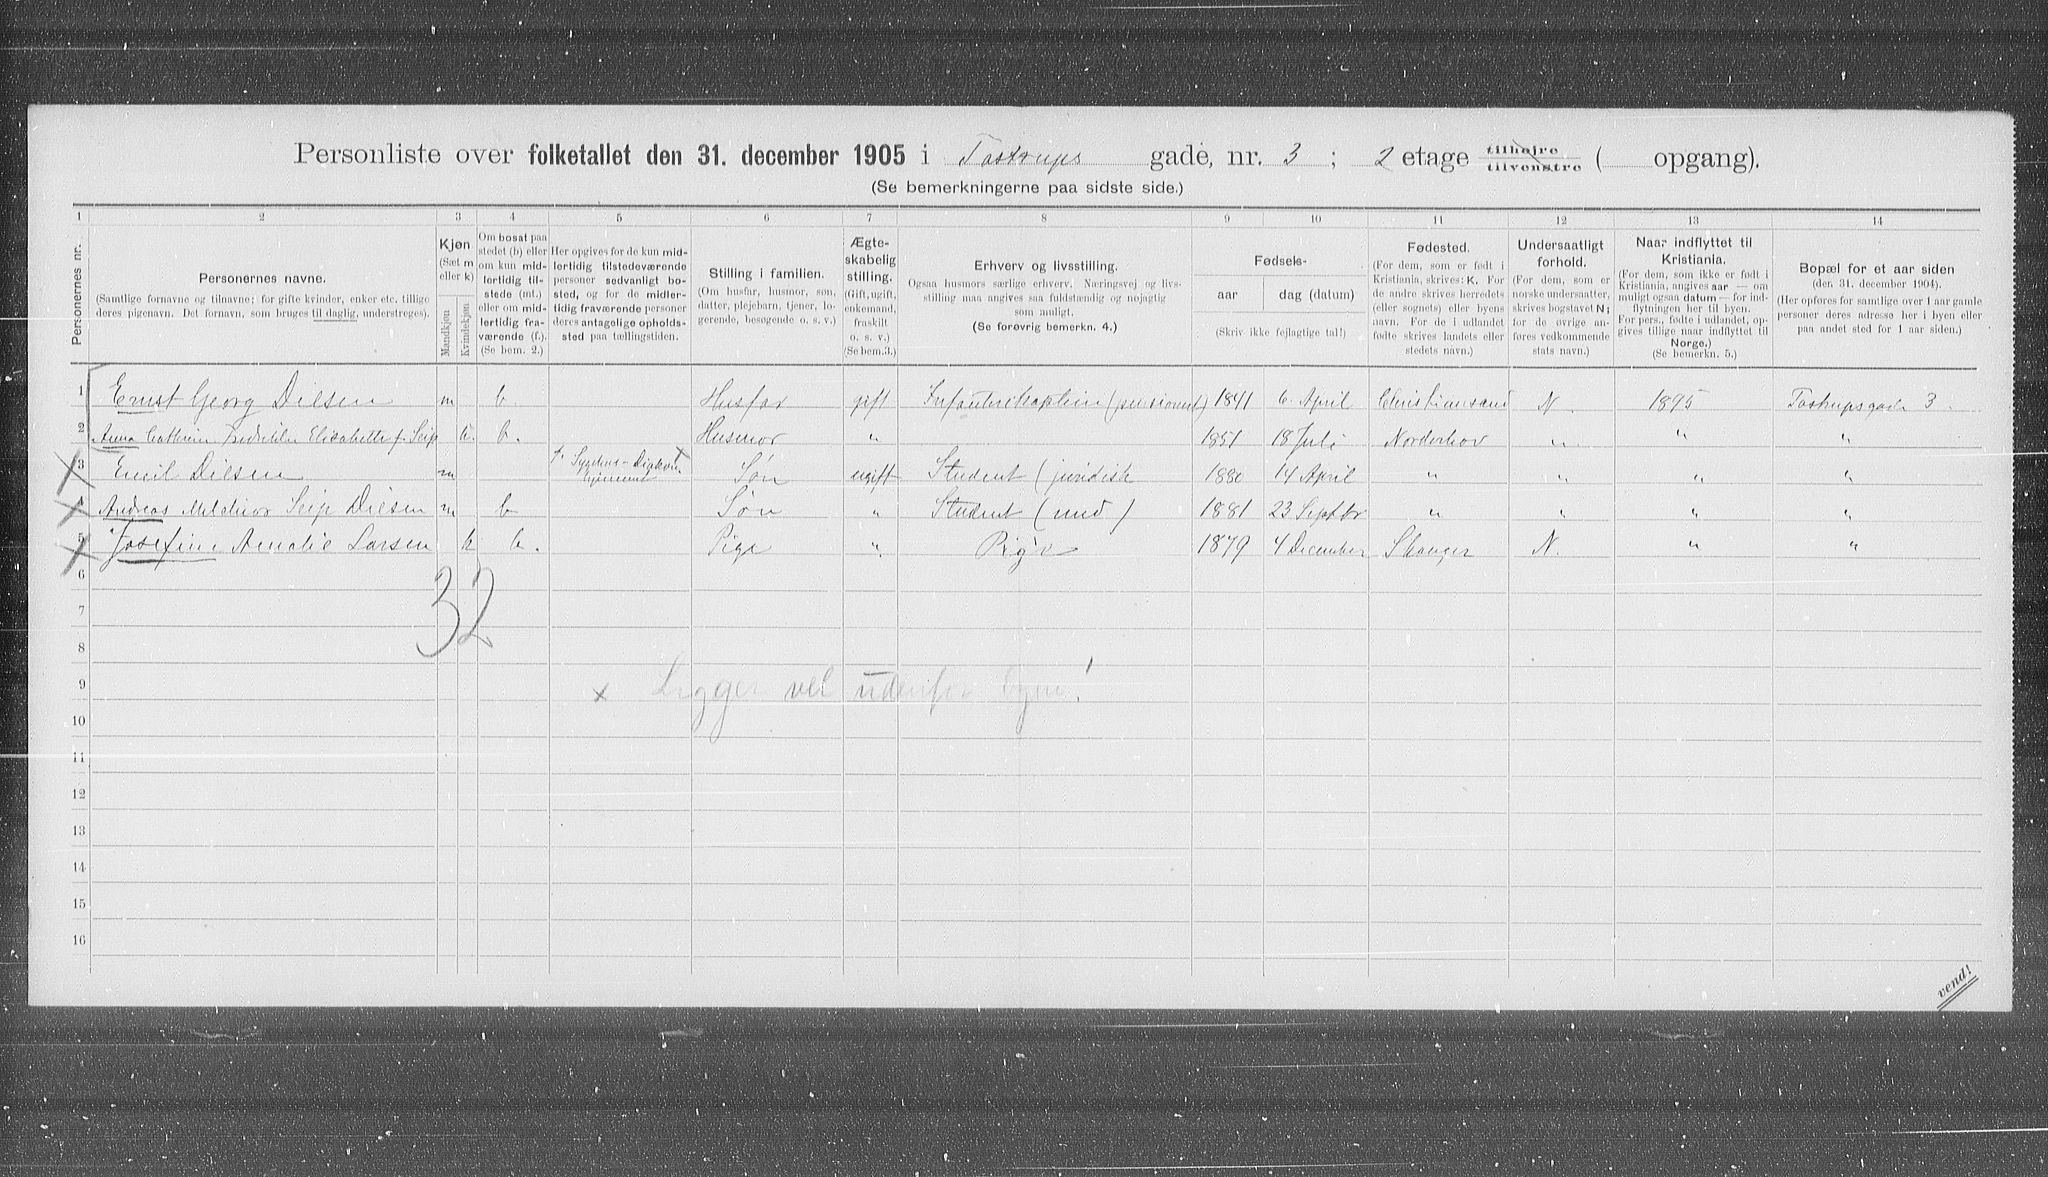 Personliste over folketallet den 31. december 1905 i Tostrups gade, nr. 3 ; 2 etage tilhøjre tilvenstre ( opgang).
(Se bemerkningerne paa sidste side.)
1 2 3 4 5 6 7 8 9 10 11 12 13 14
Personernes nr.
Personernes navne.
(Samtlige fornavne og tilnavne; for gifte kvinder, enker etc. tillige
deres pigenavn. Det fornavn, som bruges til daglig, understreges).
Kjøn
(Sæt m
eller k)
Mandkjøn
Kvindekjøn
Om bosat paa
stedet (b) eller
om kun mid-
lertidig til-
stede (mt.)
eller om mid-
lertidig fra-
værende (f.).
(Se bem. 2.)
Her opgives for de kun mid-
lertidig tilstedeværende
personer sedvanligt bo-
sted, og for de midler-
tidig fraværende personer
deres antagelige opholds-
sted paa tællingstiden.
Stilling i familien.
(Om husfar, husmor, søn,
datter, plejebarn, tjener, lo-
gerende, besøgende o. s. v.)
Ægte-
skabelig
stilling.
(Gift, ugift,
enkemand,
fraskilt
o. s. v.)
(Se bem.3.)
Erhverv og livsstilling.
Ogsaa husmors særlige erhverv. Næringsvej og livs-
stilling maa angives saa fuldstændig og nøjagtig
som muligt.
(Se forøvrig bemerkn. 4.)
Fødsels-
aar dag (datum)
(Skriv ikke fejlagtige tal!)
Fødested.
(For dem, som er født i
Kristiania, skrives: K. For
de andre skrives herredets
(eller sognets) eller byens
navn. For de i udlandet
fødte skrives landets eller
stedets navn.)
Undersaatligt
forhold.
(For dem, som er
norske undersaatter,
skrives bogstavet N;
for de øvrige an-
føres vedkommende
stats navn.)
Naar indflyttet til
Kristiania.
(For dem, som ikke er født i
Kristiania, angives aar — om
muligt ogsaa datum — for ind-
flytningen her til byen.
For pers., fødte i udlandet, op-
gives tillige naar indflyttet til
Norge.)
(Se bemerkn. 5.)
Bopæl for et aar siden
(den 31. december 1904).
(Her opføres for samtlige over 1 aar gamle
personer deres adresse her i byen eller
paa andet sted for 1 aar siden.)
1 Ernst Georg Dilsen m b. Husfar gift (pensioneret) 1841 6 April Christianssand N. 1895 Tostrupsgade 3.
2 Anna Cathrine Elisabeth f. Seip k. b. Husmor " 1851 18 Juli Norderhov " " "
3 Emil Dilsen m f. Søn ugift Student (juridisk 1880 14 April " " " "
4 Andreas Melchior Seip Dilsen m b Søn " Student (med) 1881 23 Septbr " " " "
5 Josefine Amalie Larsen k b. Pige " Pige 1879 4 December Skauger N. " "
6
32
7
8
9 x Ligger vel udenfor byen!
10
11
12
13
14
15
16
vend!